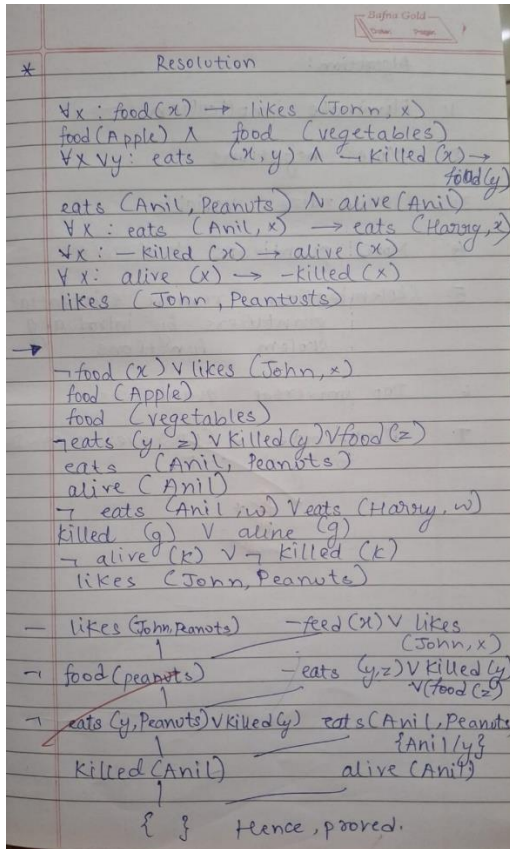 Bafna Gold
Date: Page:
* Resolution
∀x : food(x) → likes (John, x)
food (Apple) ∧ food (vegetables)
∀x ∀y : eats (x, y) ∧ ¬ Killed (x) →
food(y)
eats (Anil, Peanuts) ∧ alive (Anil)
∀x : eats (Anil, x) → eats (Harry, x)
∀x : - Killed (x) → alive (x)
∀x : alive (x) → -Killed (x)
likes (John, Peantusts)
→
¬food (x) ∨ likes (John, x)
food (Apple)
food (vegetables)
¬eats (y, z) ∨ Killed (y) ∨ food (z)
eats (Anil, Peanuts)
alive (Anil)
¬ eats (Anil, w) ∨ eats (Harry, w)
Killed (g) ∨ aline (g)
¬ alive (k) ∨ ¬ Killed (k)
likes (John, Peanuts)
— likes (John, Peanots) -feed (x) ∨ likes
(John, x)
¬ food (peanuts) -eats (y,z) ∨ Killed (y)
∨(food (z)
¬ eats (y, Peanuts) ∨ Killed (y) eats (Anil, Peanuts
{Anil/y}
Killed (Anil) alive (Anil)
{ } Hence, proved.